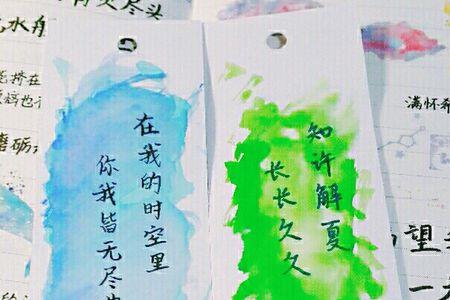 尽头
水舟
挤在
磨砺
在我的时空里
你我皆无尽
知许解夏
长长久久
满怀希
望
一